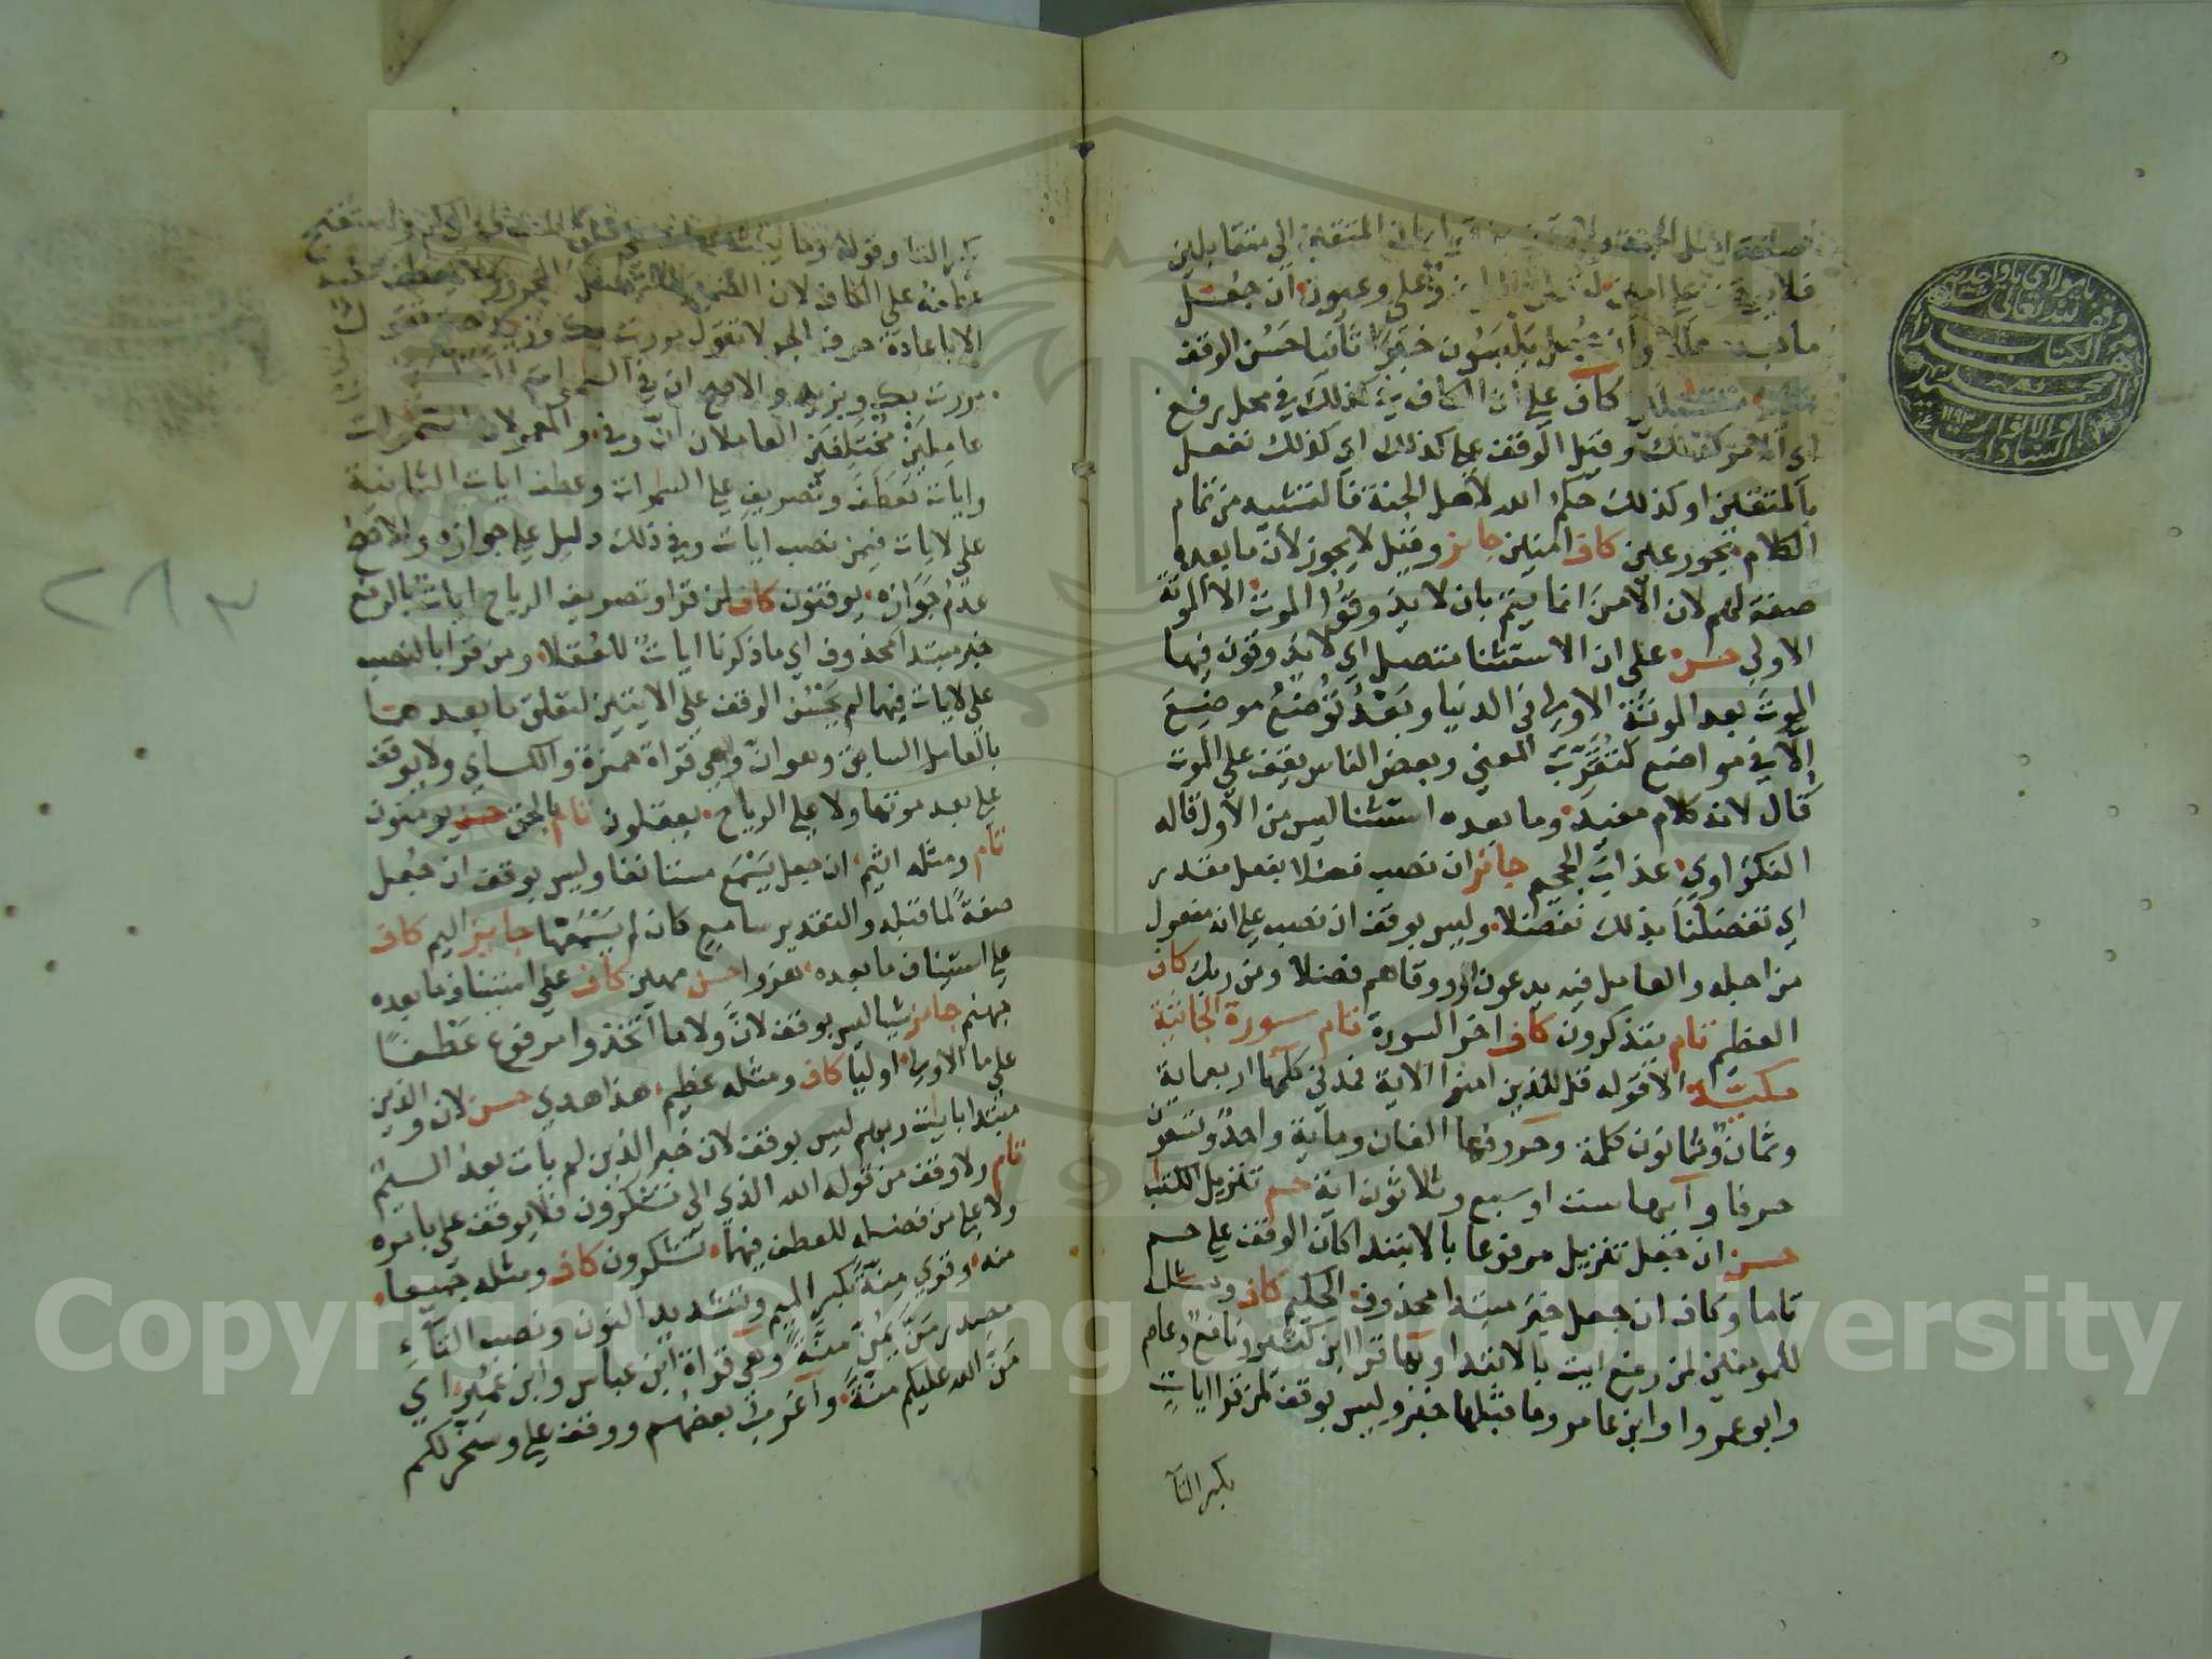 المتقين الى متقابلين
وعيون ان جعل
وان جعل يلبسون خبرا ثانيا حسن الوقف
كاف على ان الكاف في كذلك في محل رفع
اي الامر كذلك وقيل الوقف على كذلك اي كذلك نفعل
بالمتقين او كذلك حكم الله لاهل الجنة فالتشبيه من تمام
الكلام بحور عين كاف امنين جايز وقيل لا يجوز لان ما بعده
صفة لهم لان الامن انما يتم بان لا يذوقوا الموت الا الموتة
الاولى حسن على ان الاستثنا متصل اي لا يذوقون فيها
الموت بعد الموتة الاولى في الدنيا وبعد توضع موضع
الا في مواضع لتقرب المعنى وبعض الناس يقف على الموت
قال لانه كلام مفيد وما بعده استثنا ليس من الاول قاله
النكزاوي عذاب الجحيم جايز ان نصب فضلا بفعل مقدر
اي تفضلنا بذلك تفضلا وليس بوقف ان نصب على انه مفعول
من اجله والعامل فيه يدعون او ووقاهم فضلا ومن ربك كاف
العظيم تام يتذكرون كاف اخر السورة تام سورة الجاثية
مكية الا قوله قل للذين امنوا الاية فمدني كلمها اربعماية
وثمان وثمانون كلمة وحروفها الفان وماية واحد وتسعون
حرفا وآيها ست او سبع وثلاثون اية حم تنزيل الكتب
حسن ان جعل تنزيل مرفوعا بالابتدا كان الوقف على حم
تاما وكاف ان جعل خبر مبتدا محذوف الحكيم كاف ومثله
للمومنين لمن رفع ايت بالابتدا وبها قرا ابن كثير ونافع وعاصم
وابو عمروا وابن عامر وما قبلها خبر وليس بوقف لمن قرا ايات
بكسر التا
بكسر التا وقوله وما يبث
عطفه على الكاف لان
الا باعادة حرف الجر لا تقول مررت بك وزيد حتى تقول
مررت بك وبزيد والاصح ان في السموات
عاملين مختلفين العاملان ان وفي والمعمولان السموات
وايات فعطف وتصريف على السموات وعطف ايات الثانية
على لايات فيمن نصب ايات وفي ذلك دليل على جوازه والاصح
عدم جوازه يوقنون كاف لمن قرا وتصريف الرياح ايات بالرفع
خبر مبتدا محذوف اي ما ذكرنا ايات للعقلا ومن قرا بالنصب
على لايات فيهما لم يحسن الوقف على الايتين لتعلق ما بعدهما
بالعامل السابق وهو ان وهي قراة حمزة والكساي ولا يوقف
على بعد موتها ولا على الرياح يعقلون تام بالحق حسن يومنون
تام ومثله اثيم ان جعل يسمع مستانفا وليس بوقف ان جعل
صفة لما قبله والتقدير سامع كان لم يسمعها جايز اليم كاف
على استيناف ما بعده هزوا حسن مهين كاف على استيناف ما بعده
جهنم جايز شيا ليس بوقف لان ولا ما اتخذوا مرفوع عطفا
على ما الاولى اوليا كاف ومثله عظيم هذا هدي حسن لان والذين
مبتدا بايات ربهم ليس بوقف لان خبر الذين لم يات بعد اليم
تام ولا وقف من قوله الله الذي الى تشكرون فلا يوقف على بامره
ولا على من فضله للعطف فيهما تشكرون كاف ومثله جميعا
منه وقري منة بكسر الميم وتشديد النون ونصب التاء
مصدر من يمن منة وهي قراة ابن عباس وابن عمير اي
من الله عليكم منة واغرب بعضهم ووقف على وسخر لكم
٢٨٣
وقف لله تعالى
١١٩٣
Copyright © King Saud University
1957